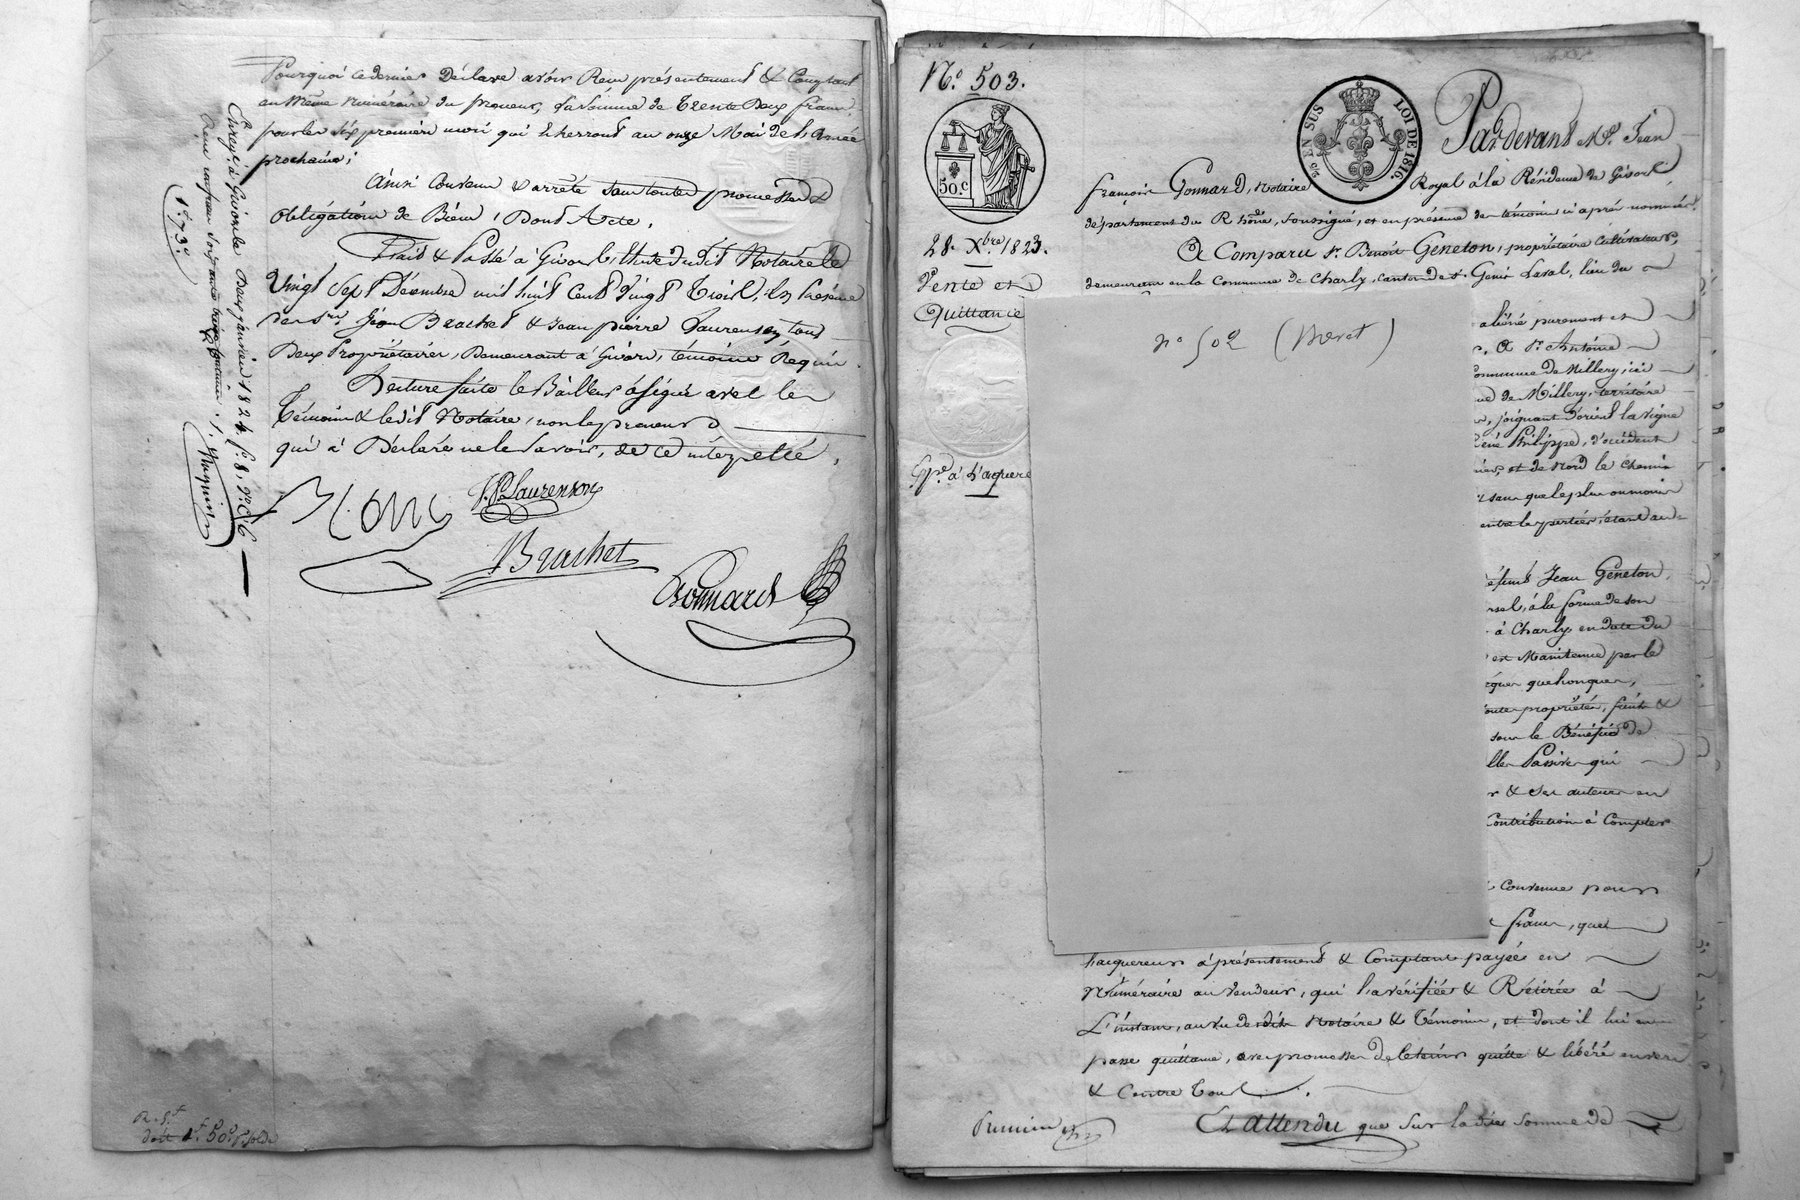 Pourquoi ce dernier Déclare avoir Reçu présentement & Comptant
en même numéraire du preneur, la Somme de Trente Deux francs
pour les Six premiers mois qui écherront au onze Mai de l'Année
prochaine;
Ainsi Convenu & arrêté sous toutes promesses &
obligations de Biens, Dont Acte,
Fait & Passé à Givors, Etude dudit Notaire le
Vingt Sept Décembre mil huit Cent Vingt Trois, En présence
de Srs Jean Brachet & Jean pierre Laurenson tous
Deux Propriétaires, Demeurant à Givors, témoins Requis.
Lecture faite le Bailleur a signé avec les
témoins & ledit Notaire, non le preneur
qui a Déclaré ne le Savoir, de ce interpellé,
J.P. Laurenson
Brachet
Gonnard
Enregt. à Givors le Deux janvier 1824, fo. 8, Vo. C. 6
Reçu un franc Soixante
1f. 73c.
R. 5f
doit 1f. 50c. p. solde
No. 503.
50. c
28. Xbre. 1823.
Vente et
Quittance
Gsse. à L'aquereur
EN SUS
LOI DE 1816.
Pardevant Me. Jean
françois Gonnard, Notaire Royal à la Résidence de Givors
département du Rhône, soussigné, et en présence des témoins ci après nommés
A Comparu sr. Benoit Geneton, propriétaire cultivateur,
demeurant en la Commune de Charly, Canton de St. Genis Laval, lieu du
no 502 (Brevet)
aliéné purement et
à Sr. Antoine
Commune de Millery, ici
de Millery, territoire
joignant D'orient la vigne
Philippe, d'occident
et de Nord le chemin
sans que le plus ou moins
entre les parties, étant au
Jean Geneton,
à la forme de son
à Charly en date du
est Maintenue par le
quelconques,
propriétés, fruits &
sous le Bénéfice de
Passives qui
& Ses auteurs en
Contribution à Compter
Convenue pour
francs, que
l'acquereur a présentement & Comptant payée en
Numéraire au vendeur, qui l'a vérifiée & Retirée à
L'instant, au vu dudit Notaire & témoins, et dont il lui en
passe quittance, avec promesse de le tenir quitte & libéré envers
& Contre tous.
Et attendu que Sur la dite Somme de